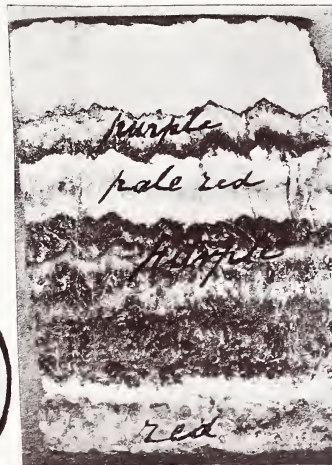 purple
pale red
purple
red